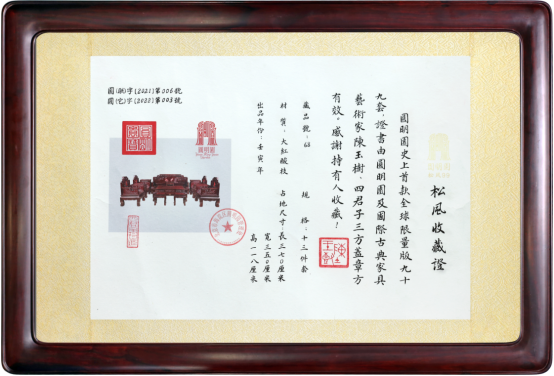 松風收藏證
圓明園史上首款全球限量版九十
九套，證書由圓明園及國際古典家具
藝術家陳玉樹、四君子三方蓋章方
有效。感謝持有人收藏！
藏品號：68
規格：十三件套
材質：大紅酸枝
占地尺寸：長三七〇厘米
寬三五〇厘米
高一一八厘米
出品年份：壬寅年
圓(制)字(2021)第006號
圓(它)字(2022)第003號
圓明園